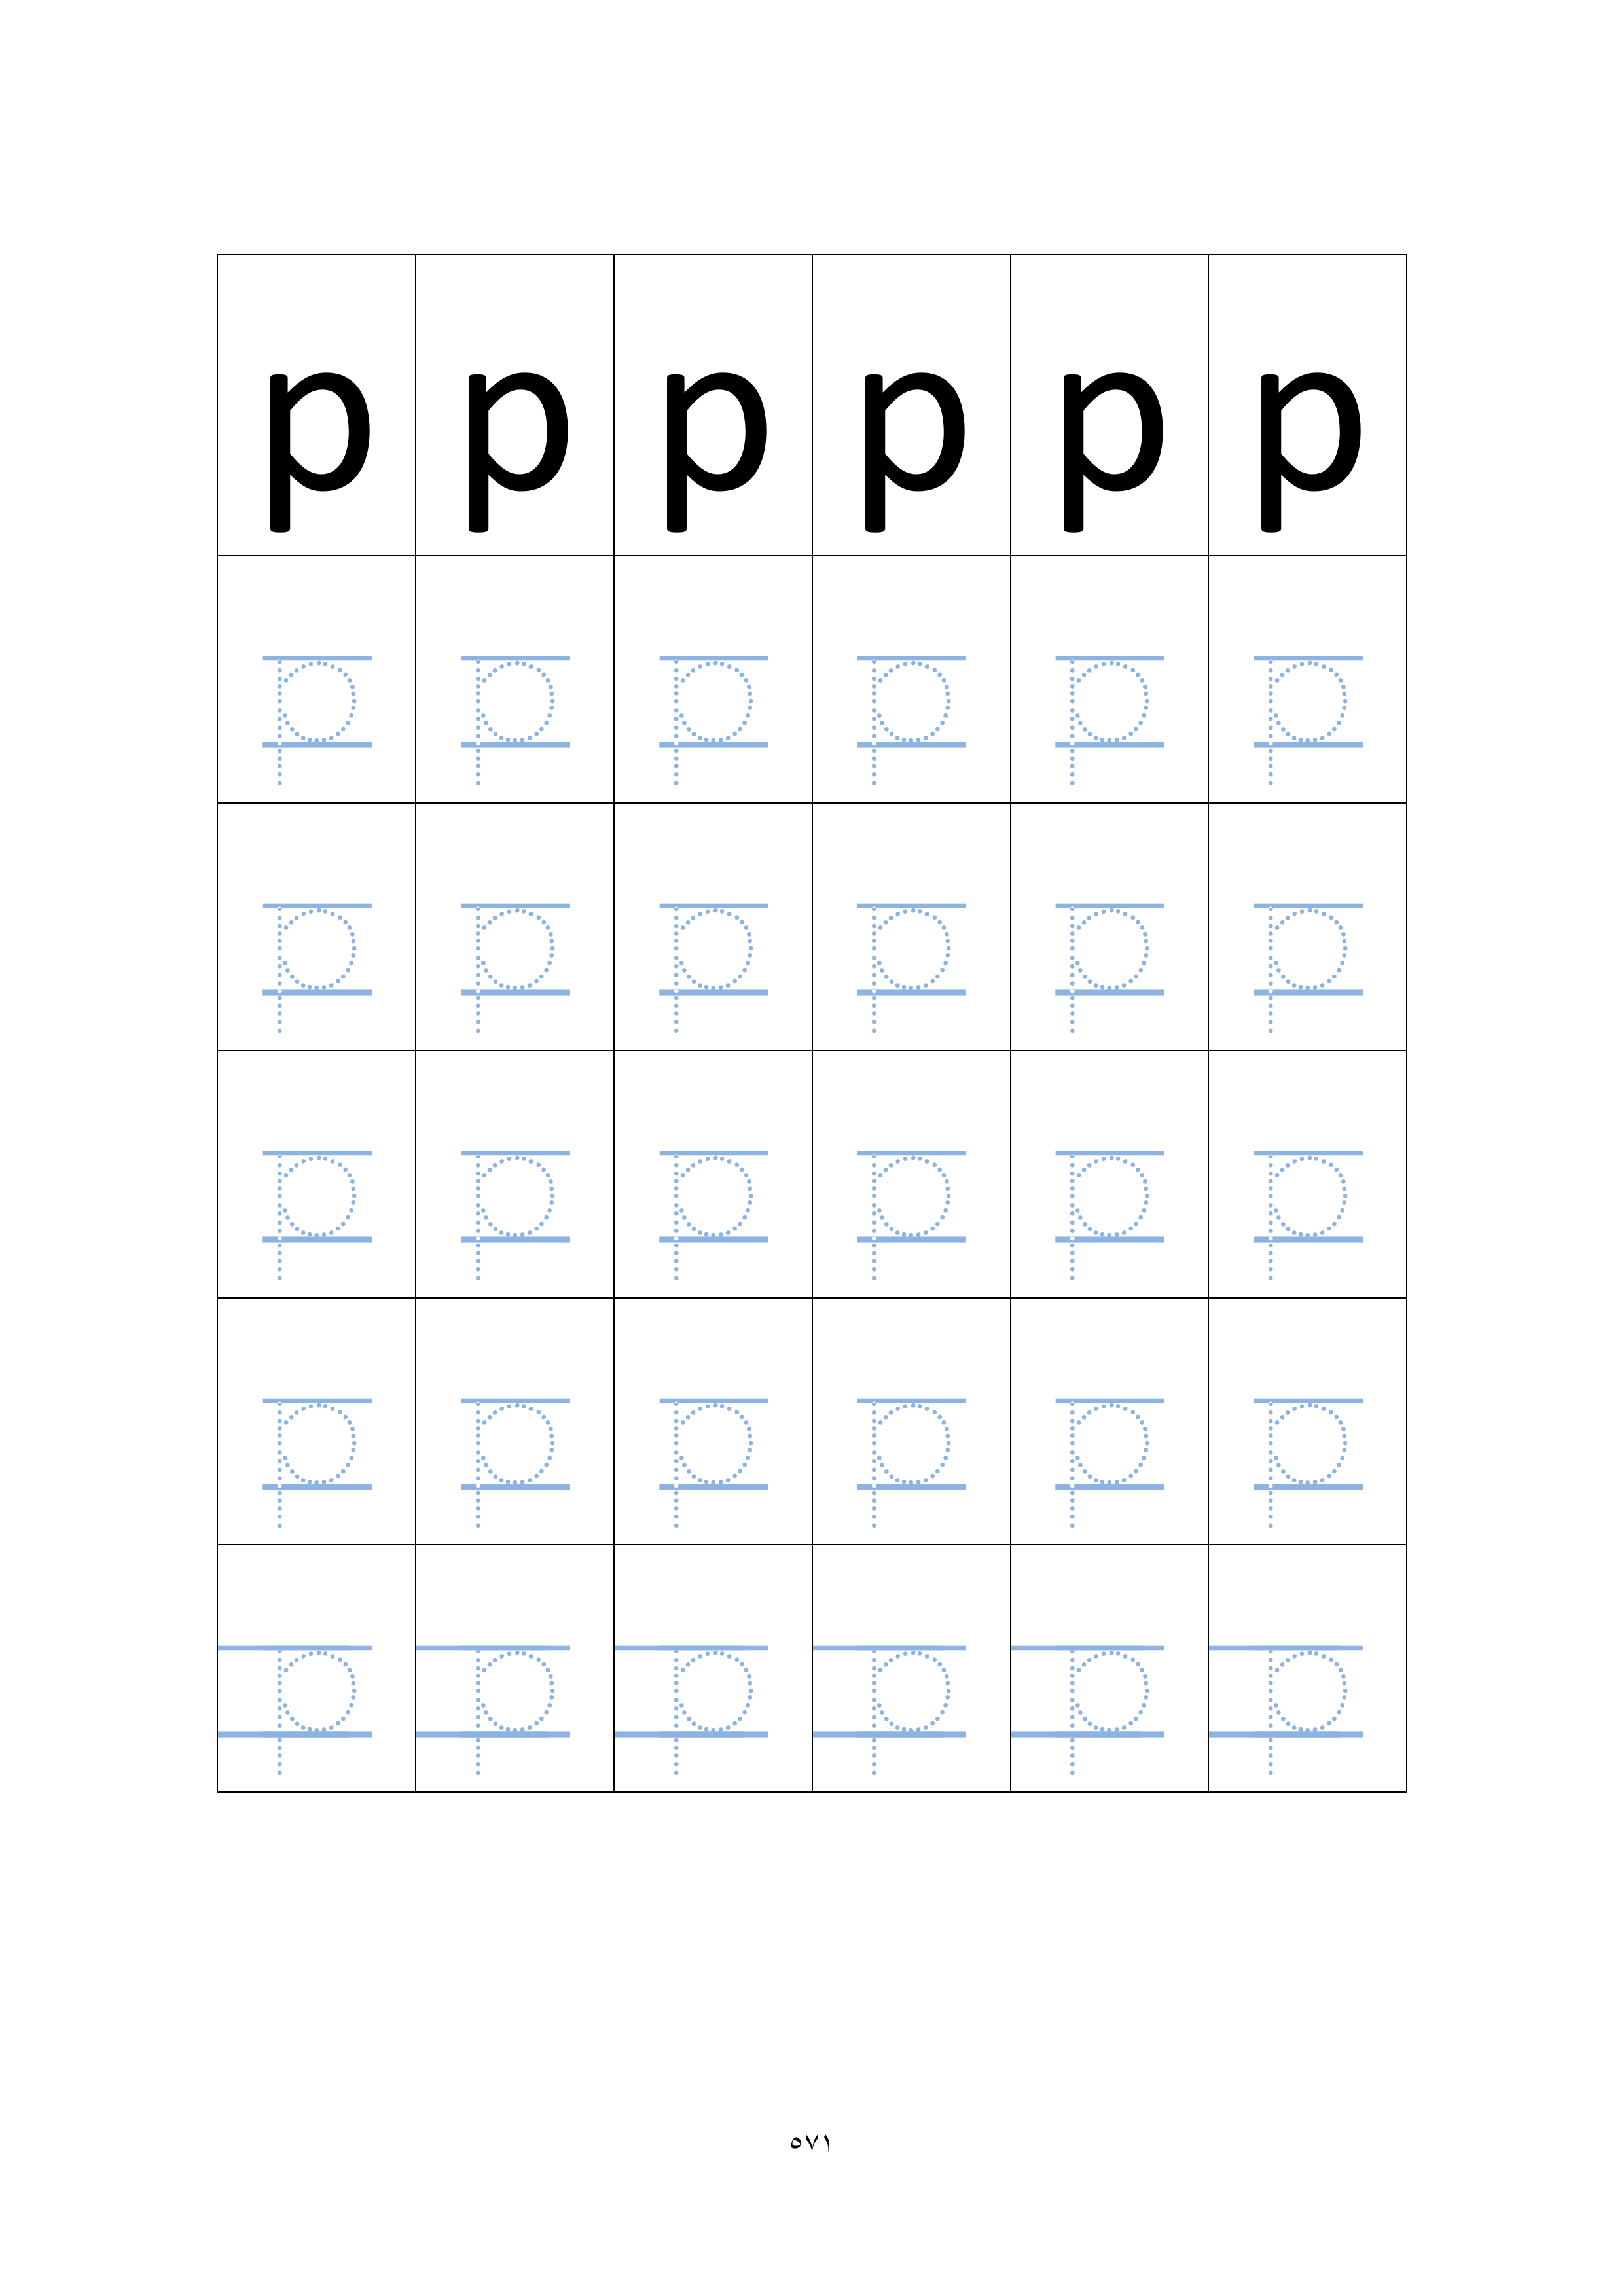 p p p p p p
p p p p p p
p p p p p p
p p p p p p
p p p p p p
p p p p p p
٥٧١